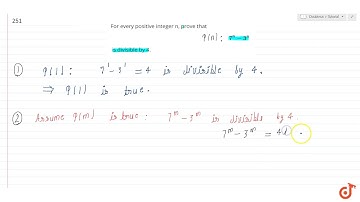 251
For every positive integer n, prove that
q(n) : 7ⁿ - 3ⁿ
is divisible by 4
① q(1) : 7¹ - 3¹ = 4 is divisible by 4.
⇒ q(1) is true.
② Assume q(m) is true : 7ᵐ - 3ᵐ is divisible by 4
7ᵐ - 3ᵐ = 4